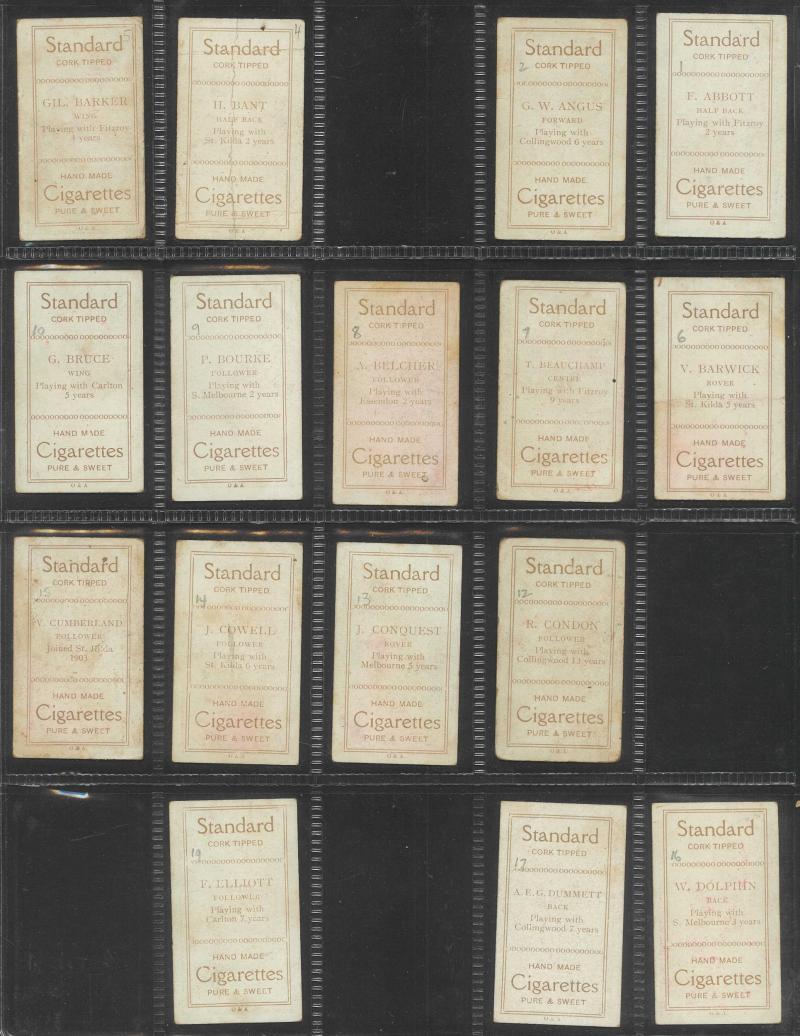 5
Standard
CORK TIPPED
GIL. BARKER
WING
Playing with Fitzroy
4 years
HAND MADE
Cigarettes
PURE & SWEET
O & A
4
Standard
CORK TIPPED
H. BANT
HALF BACK
Playing with
St. Kilda 2 years
HAND MADE
Cigarettes
PURE & SWEET
O & A
Standard
CORK TIPPED
2
G. W. ANGUS
FORWARD
Playing with
Collingwood 6 years
HAND MADE
Cigarettes
PURE & SWEET
O & A
Standard
CORK TIPPED
1
F. ABBOTT
HALF BACK
Playing with Fitzroy
2 years
HAND MADE
Cigarettes
PURE & SWEET
O & A
Standard
CORK TIPPED
10
G. BRUCE
WING
Playing with Carlton
5 years
HAND MADE
Cigarettes
PURE & SWEET
O & A
Standard
CORK TIPPED
9
P. BOURKE
FOLLOWER
Playing with
S. Melbourne 2 years
HAND MADE
Cigarettes
PURE & SWEET
O & A
Standard
CORK TIPPED
8
A. BELCHER
FOLLOWER
Playing with
Essendon 2 years
HAND MADE
Cigarettes
PURE & SWEET
O & A
Standard
CORK TIPPED
7
T. BEAUCHAMP
CENTRE
Playing with Fitzroy
9 years
HAND MADE
Cigarettes
PURE & SWEET
O & A
Standard
CORK TIPPED
6
V. BARWICK
ROVER
Playing with
St. Kilda 5 years
HAND MADE
Cigarettes
PURE & SWEET
O & A
Standard
CORK TIPPED
15
V. CUMBERLAND
FOLLOWER
Joined St. Kilda
1903
HAND MADE
Cigarettes
PURE & SWEET
O & A
Standard
CORK TIPPED
14
J. COWELL
FOLLOWER
Playing with
St. Kilda 6 years
HAND MADE
Cigarettes
PURE & SWEET
O & A
Standard
CORK TIPPED
13
J. CONQUEST
ROVER
Playing with
Melbourne 5 years
HAND MADE
Cigarettes
PURE & SWEET
O & A
Standard
CORK TIPPED
12
R. CONDON
FOLLOWER
Playing with
Collingwood 11 years
HAND MADE
Cigarettes
PURE & SWEET
O & A
Standard
CORK TIPPED
19
F. ELLIOTT
FOLLOWER
Playing with
Carlton 7 years
HAND MADE
Cigarettes
PURE & SWEET
O & A
Standard
CORK TIPPED
17
A. E. G. DUMMETT
BACK
Playing with
Collingwood 7 years
HAND MADE
Cigarettes
PURE & SWEET
O & A
Standard
CORK TIPPED
16
W. DOLPHIN
BACK
Playing with
S. Melbourne 3 years
HAND MADE
Cigarettes
PURE & SWEET
O & A